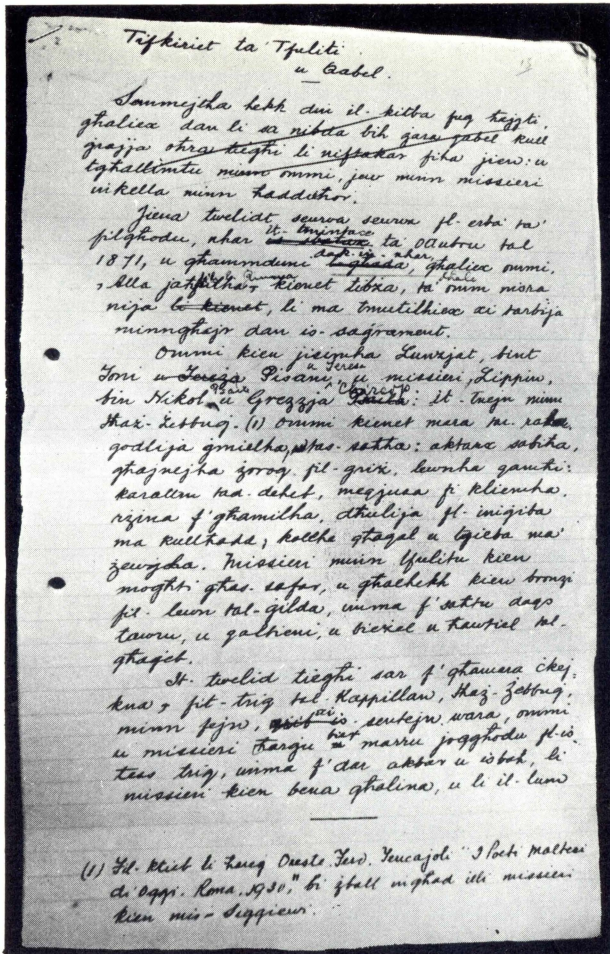 Tifkiriet ta' Tfuliti
u Qabel.
Semmejtha hekk din il-kitba fuq hajjti
ghaliex dan li sa nibda bih gara qabel kull
grajja ohra tieghi li niftakar fiha jien: u
tghallimtu minn ommi, jew minn missieri
inkella minn haddiehor.
Jiena twelidt sewwa sewwa fl-erbà ta'
filghodu, nhar it-tmintax ta' Ottubru tal
1871, u ghammduni dak in-nhar, ghaliex ommi,
Alla jahfrilha, kienet tibza, ta' omm
nija li ma tmutilhiex xi tarbija
minnghajr dan is-sagrament.
Ommi kien jisimha Lunzjat, bint
Toni u Tereża Pisani, u missieri, Lippu,
bin Nikol u Grezzja: It-tnejn minn
Haż-Żebbuġ. (1) Ommi kienet mara tar-raħal
godlija gmielha, tas-sahha: aktarx sabiha,
ghajnejha zoroq fil-griż, lewnha qamhi:
karattru tad-deheb, meqjusa fi kliemha,
rżina f'ghamilha, dhulija fl-imgiba
ma kullhadd; kollha ghaqal u tgieba ma'
żewġha. Missieri minn tfulitu kien
moghti ghas-safar, u ghalhekk kien bronzi
fil-lewn tal-gilda, imma f'sahtu daqs
tawru, u qalbieni, u bieżel u tal-
ghaqeb.
It-twelid tieghi sar f'ghamara ċkej-
kna, fit-triq tal-Kappillan, Haż-Żebbuġ,
minn fejn, xi sentejn wara, ommi
u missieri hargu biex marru joqghodu fl-is-
tess triq, imma f'dar akbar u isbah, li
missieri kien bena ghalina, u li il-lum
(1) Fil-ktieb li hareġ Oreste Ferd. Tencajoli "I Poeti Maltesi
di Oggi. Roma, 1930," bi żball inghad illi missieri
kien mis-Siġġiewi.